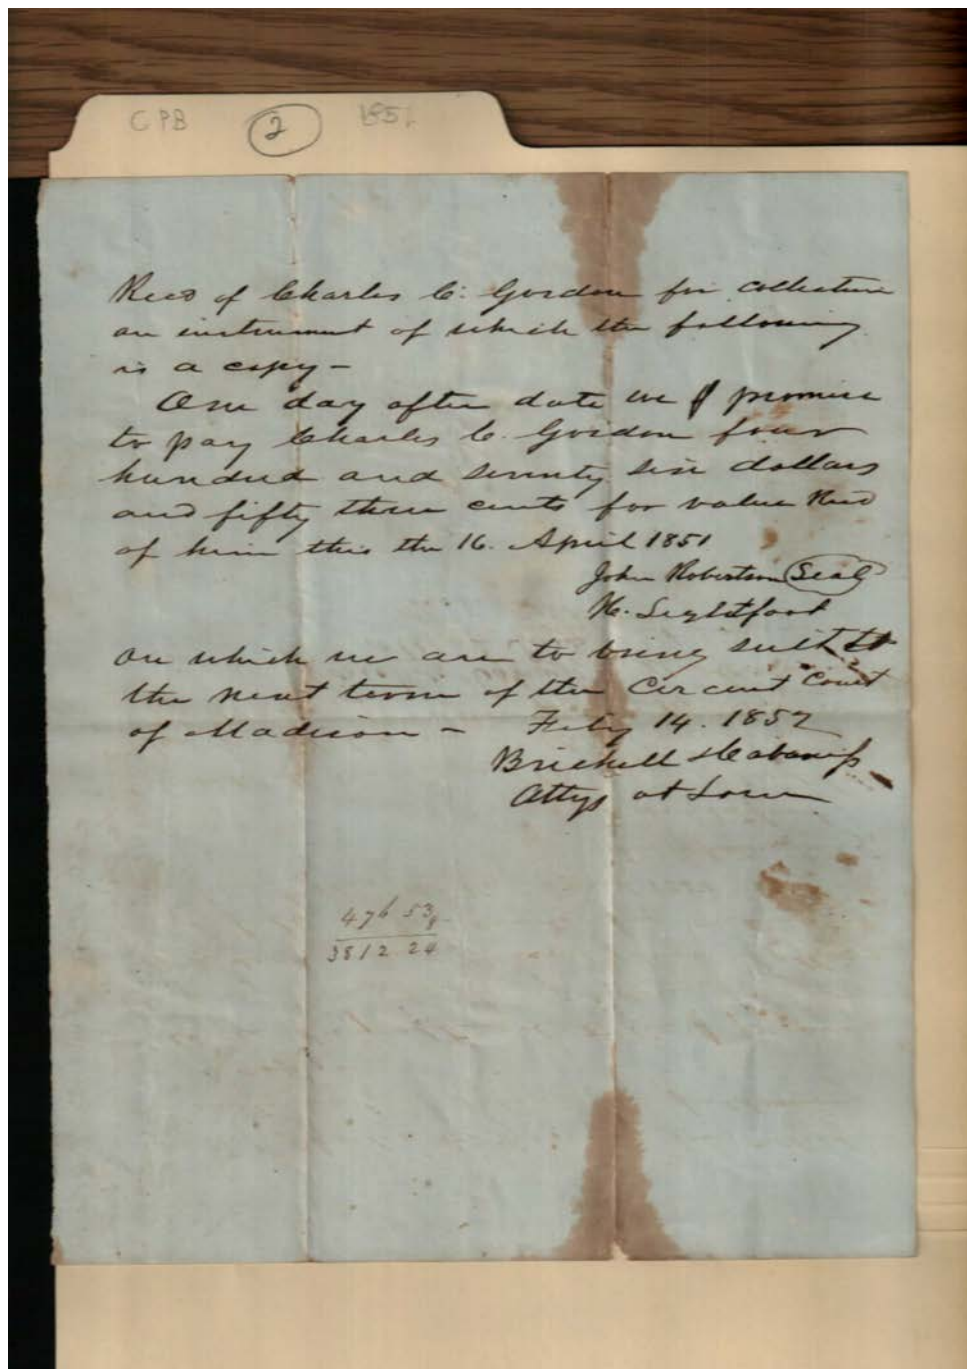 CPB 2 1851
Recd of Charles C. Gordon for collection
an instrument of which the following
is a copy -
One day after date we promise
to pay Charles C. Gordon four
hundred and seventy six dollars
and fifty three cents for value Recd
of him this the 16. April 1851
John Robertson Seal
H. Lightfoot
on which we are to bring suit to
the next term of the Circuit Court
of Madison - Feby 14. 1852
Brickell & Cabaniss
Attys at Law
476 53
3812 24